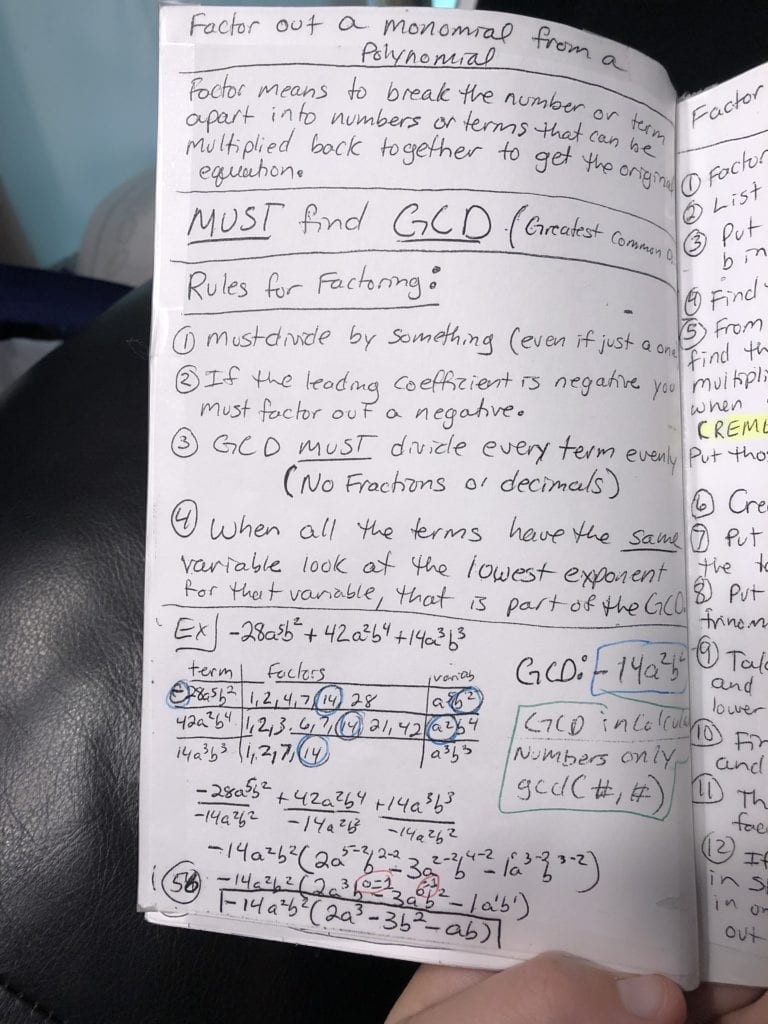 Factor out a monomial from a
Polynomial
Factor means to break the number or term
apart into numbers or terms that can be
multiplied back together to get the original
equation.
MUST find GCD. (Greatest Common D
Rules for Factoring:
① must divide by something (even if just a one
② If the leading coefficient is negative you
must factor out a negative.
③ GCD MUST divide every term evenly
(No Fractions or decimals)
④ When all the terms have the same
variable look at the lowest exponent
for that variable, that is part of the GCD.
Ex] -28a⁵b² + 42a²b⁴ + 14a³b³
GCD: -14a²b²
term | Factors | variab
-28a⁵b² | 1, 2, 4, 7, 14, 28 | a⁵b²
42a²b⁴ | 1, 2, 3, 6, 7, 14, 21, 42 | a²b⁴
14a³b³ | 1, 2, 7, 14 | a³b³
GCD in Calcula
Numbers only
gcd(#, #)
-28a⁵b² + 42a²b⁴ + 14a³b³
-14a²b² -14a²b² -14a²b²
-14a²b²(2a⁵⁻²b²⁻² - 3a²⁻²b⁴⁻² - 1a³⁻²b³⁻²)
-14a²b²(2a³b⁰⁼¹ - 3a⁰b² - 1a¹b¹)
-14a²b²(2a³ - 3b² - ab)
Factor
① Factor
② List
③ Put
b in
④ Find
⑤ From
find th
multipli
when
CREME
Put thos
⑥ Cre
⑦ Put
the to
⑧ Put
trinom
⑨ Take
and
lower
⑩ Fir
and
⑪ Th
fac
⑫ If
in s
in or
out